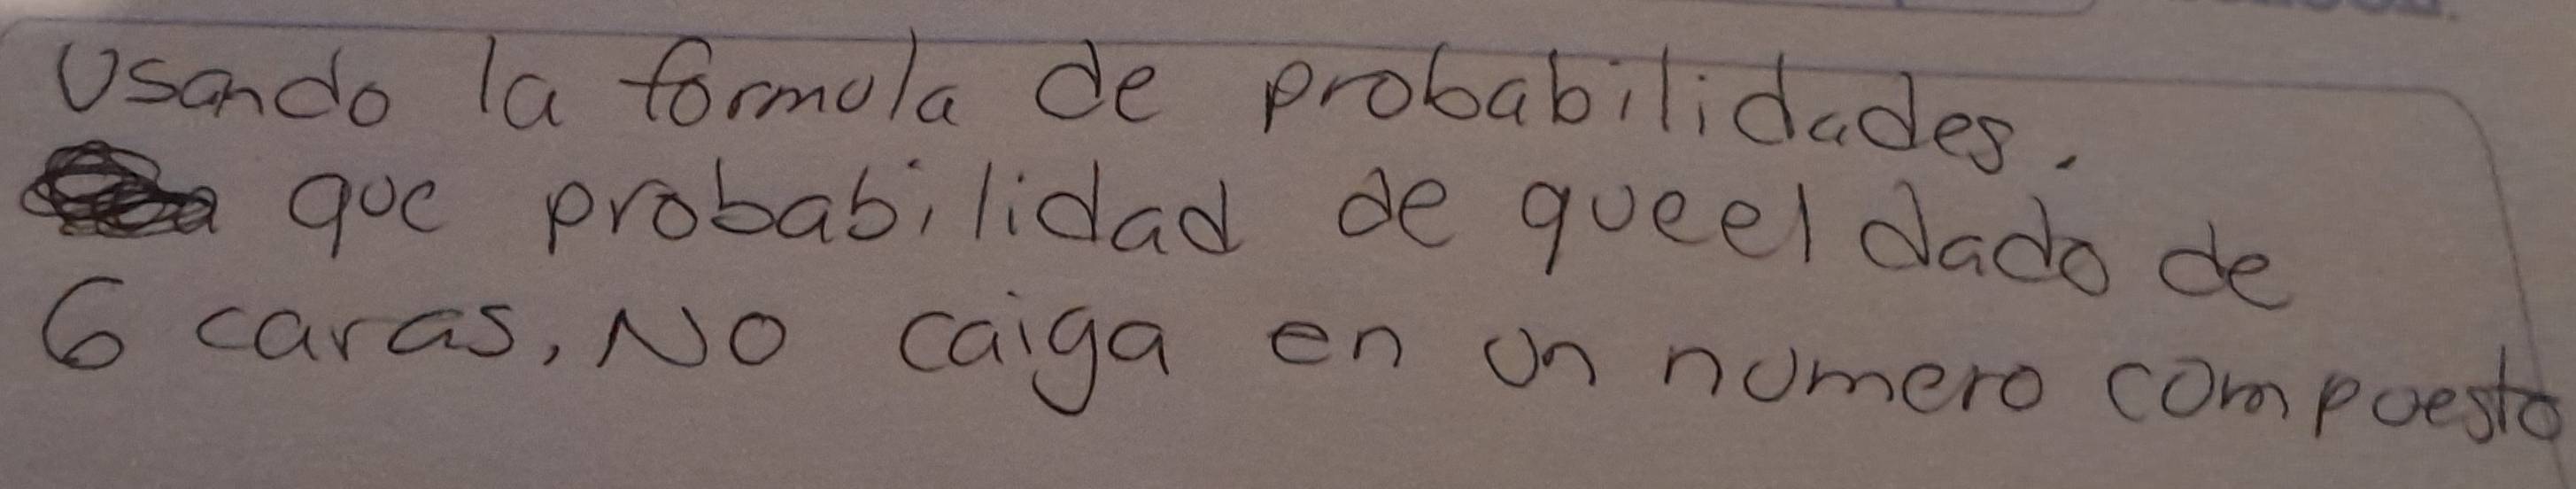 Usando la formula de probabilidades.
que probabilidad de que el dado de
6 caras, No caiga en un numero compuesto